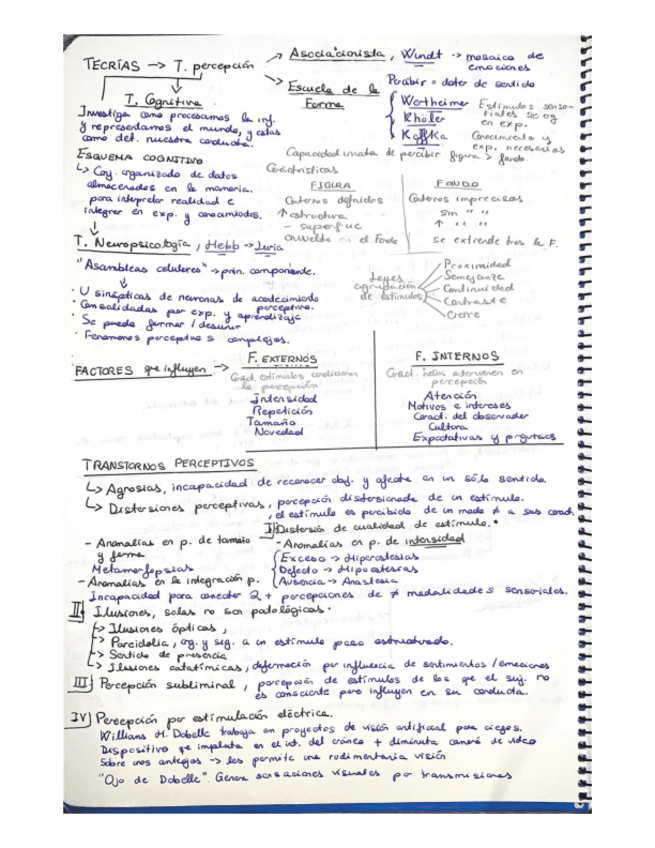 TEORÍAS → T. percepción
→ Asociacionista, Wundt → mosaico de emociones
→ Escuela de la Forma
Percibir = dotar de sentido
Wertheimer
Khöler
Koffka
Estímulos senso-
riales se og
en exp.
Conocimiento y
exp. necesarias
Capacidad innata de percibir figura > fondo.
Características
FIGURA
Contornos definidos
↑ estructura
- superficie
envuelta en el Fondo
FONDO
Contornos imprecisos
sin " "
↑ " "
se extiende tras la F.
Leyes agrupación de estímulos
Proximidad
Semejanza
Continuidad
Contraste
Cierre
T. Cognitiva
Investiga como procesamos la inf.
y representamos el mundo, y estas
como det. nuestra conducta.
ESQUEMA COGNITIVO
↳ Coj. organizado de datos
almacenados en la memoria.
para interpretar realidad e
integrar en exp. y conocimientos.
↓
T. Neuropsicología, Hebb → Luria
"Asambleas celulares" → prin. componente.
↓
· U sinápticas de neuronas de acontecimiento
perceptivo.
· Consolidadas por exp. y aprendizaje
· Se puede formar / desunir
· Fenómenos perceptivos complejos.
FACTORES que influyen →
F. EXTERNOS
Caract. estímulos condicionan
la percepción
Intensidad
Repetición
Tamaño
Novedad
F. INTERNOS
percepción
Atención
Motivos e intereses
Caract. del observador
Cultura
Expectativas y prejuicios
TRANSTORNOS PERCEPTIVOS
↳ Agnosias, incapacidad de reconocer obj. y afecta en un sólo sentido.
↳ Distorsiones perceptivas, percepción distorsionada de un estímulo.
, el estímulo es percibido de un modo ≠ a sus caract.
I) Distorsión de cualidad de estímulo.
- Anomalías en p. de tamaño
y forma
Metamorfopsias
- Anomalías en p. de intensidad
Exceso → Hiperestesias
Defecto → Hipoestesias
Ausencia → Anestesia
- Anomalías en la integración p.
Incapacidad para conectar 2 + percepciones de ≠ modalidades sensoriales.
II) Ilusiones, solas no son patológicas.
→ Ilusiones ópticas,
→ Pareidolia, og. y sig. a un estímulo poco estructurado.
→ Sentido de presencia
↳ Ilusiones catatímicas, deformación por influencia de sentimientos / emociones
III) Percepción subliminal, percepción de estímulos de los que el suj. no
es consciente pero influyen en su conducta.
IV) Percepción por estimulación eléctrica.
Willians H. Dobelle trabaja en proyectos de visión artificial para ciegos.
Dispositivo qe implanta en el int. del cráneo + diminuta cámara de video
sobre unos anteojos → les permite una rudimentaria visión
"Ojo de Dobelle". Genera sensaciones visuales por transmisiones